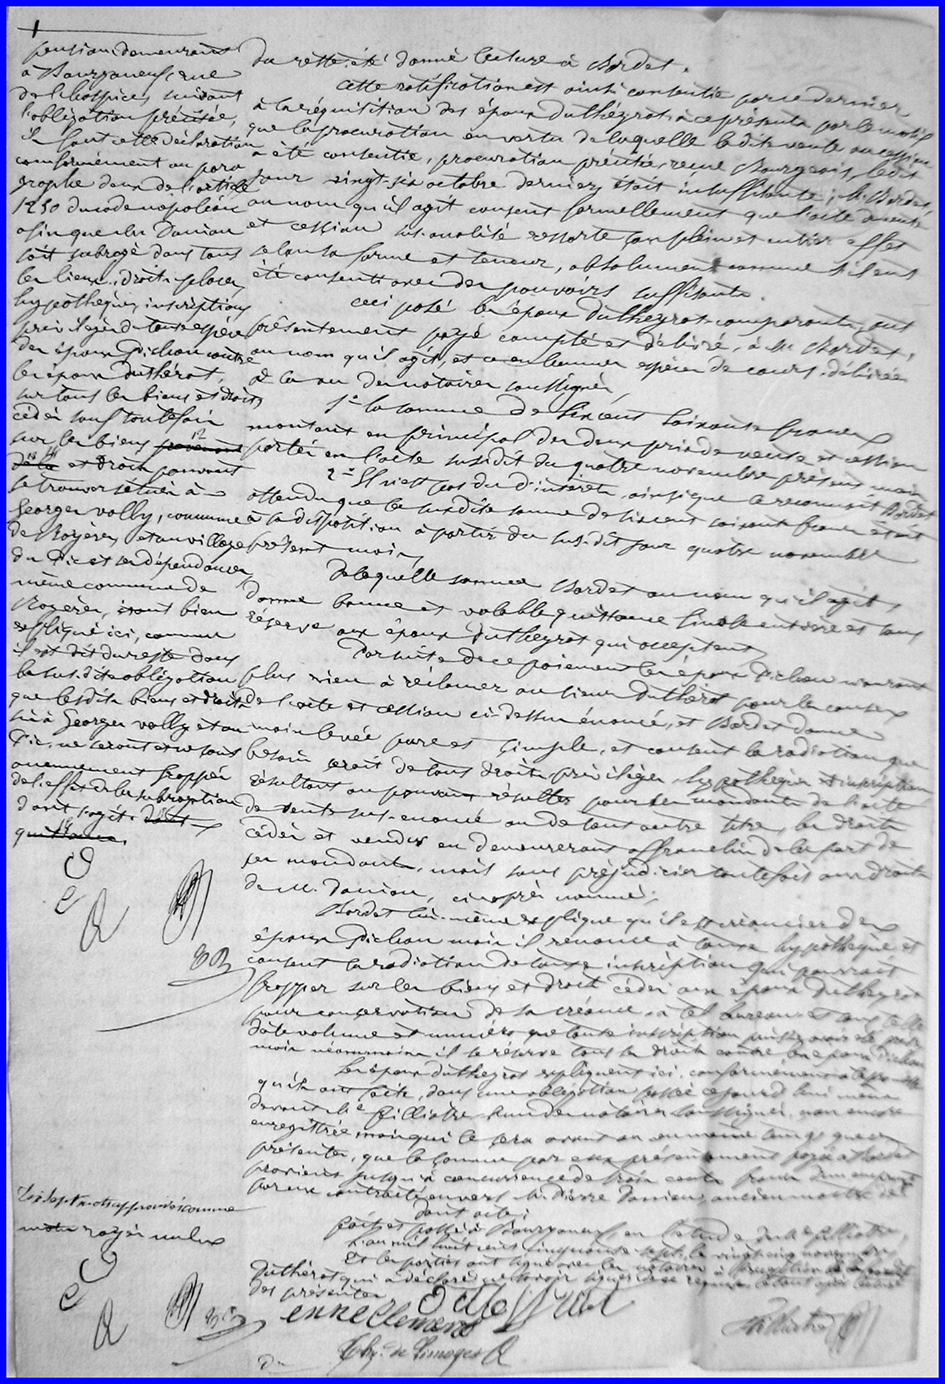 du reste été donné lecture à Bordet.
Cette ratification est ainsi consentie par ce dernier,
à la réquisition des époux Duthéyrat, à ce présents, par le motif
que la procuration en vertu de laquelle la dite vente ou cession
a été consentie, procuration précitée, reçue Bourgeois, le dit
jour vingt-six octobre dernier, était insuffisante; M. Bordet
au nom qu'il agit consent formellement que l'acte de vente
et cession sus-analisé ressorte son plein et entier effet
selon sa forme et teneur, absolument comme s'il eut
été consenti avec des pouvoirs suffisants.
Ceci posé les époux Duthéyrat comparants, ont
présentement payé compté et délivré, à M. Bordet,
au nom qu'il agit, et ce en bonnes espèces de cours, délivrées
à la vue des notaires soussignés
1° la somme de six cent soixante francs
montant en principal des deux prix de vente et cession
portés en l'acte susdit du quatre novembre présent mois
2° Il n'est pas du d'intérêts, ainsi que le reconnait Bordet
attendu que la susdite somme de six cent soixante francs était
à sa disposition à partir du sus-dit jour quatre novembre
présent mois
De laquelle somme Bordet au nom qu'il agit,
donne bonne et valable quittance finale entière et sans
réserve aux époux Duthéyrat qui acceptent
Par suite de ce paiement les époux Pichon n'auront
plus rien à réclamer au sieur Duthérat pour les causes
de l'acte et cession ci-dessus énoncé, et Bordet donne
main levée pure et simple, et consent la radiation que
besoin serait de tous droits privilèges hypothèques et inscriptions
résultant ou pouvant résulter pour ses mandants de l'acte
de vente sus-énoncé ou de tout autre titre, les droits
cédés et vendus en demeureront affranchis de la part de
ses mandants, mais sans préjudicier toutefois aux droits
de M. Danion, ci-après nommé;
Bordet lui-même explique qu'il est créancier des
époux Pichon mais il renonce à toute hypothèque et
consent la radiation de toute inscription qui pourrait
frapper sur les biens et droits cédés aux époux Duthéyrat
pour conservation de sa créance, à tel bureau et sous tels
date volume et numéro que toute inscription puisse avoir été prise
mais néanmoins il se réserve tous ses droits contre les époux Pichon
Les époux Duthéyrat expliquent ici, conformément à la promesse
qu'ils ont faite, dans une obligation passée cejourd'hui même
devant Me Filliatre, l'un des notaires soussignés, non encore
enregistrée mais qui le sera avant ou en même temps que ces
présentes, que la somme par eux présentement payée à Bordet
provient jusqu'à concurrence de trois cents francs d'un emprunt
par eux contracté envers M. Pierre Danion, ancien maître de
pension demeurant
à Bourganeuf, rue
de l'hospice, suivant
l'obligation précitée,
ils font cette déclaration
conformément au para
graphe deux de l'article
1250 du code napoléon
afin que le sr Danion
soit subrogé dans tous
les lieux, droits places
hypothèques, inscriptions
privilèges de toute espèce
des époux Pichon contre
les époux Duthérat,
sur tous les biens et droits
cédés sauf toutefois
sur les biens provenant
de la et droits pouvant
se trouver situés à
Georges volly, commune
de Royère, et au village
du Pic et ses dépendances
même commune de
Royère, étant bien
expliqué ici, comme
il est dit du reste dans
la susdite obligation
que les dits biens et droits
sis à Georges volly et au
Pic, ne seront et ne sont
aucunement frappés
de l'effet de la subrogation
dont s'agit. dont
quittance.
Dont acte;
Fait et passé à Bourganeuf, en l'étude de Me Filliatre,
L'an mil huit cent cinquante sept, le vingt cinq novembre
Et les parties ont signé avec les notaires à l'exception de
Duthérat qui a déclaré ne savoir signer de ce requis, le tout après lecture
des présentes
Les sept mots approuvés comme
mots rayés nuls
enne Clement
Filliatre